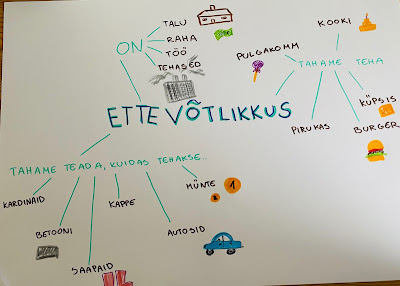 TALU
RAHA
ON
TÖÖ
TEHASED
KOOKI
PULGAKOMM
TAHAME TEHA
KÜPSIS
BURGER
PIRUKAS
ETTEVÕTLIKKUS
TAHAME TEADA, KUIDAS TEHAKSE..
KARDINAID
BETOONI
SAAPAID
KAPPE
AUTOSID
MÜNTE
1